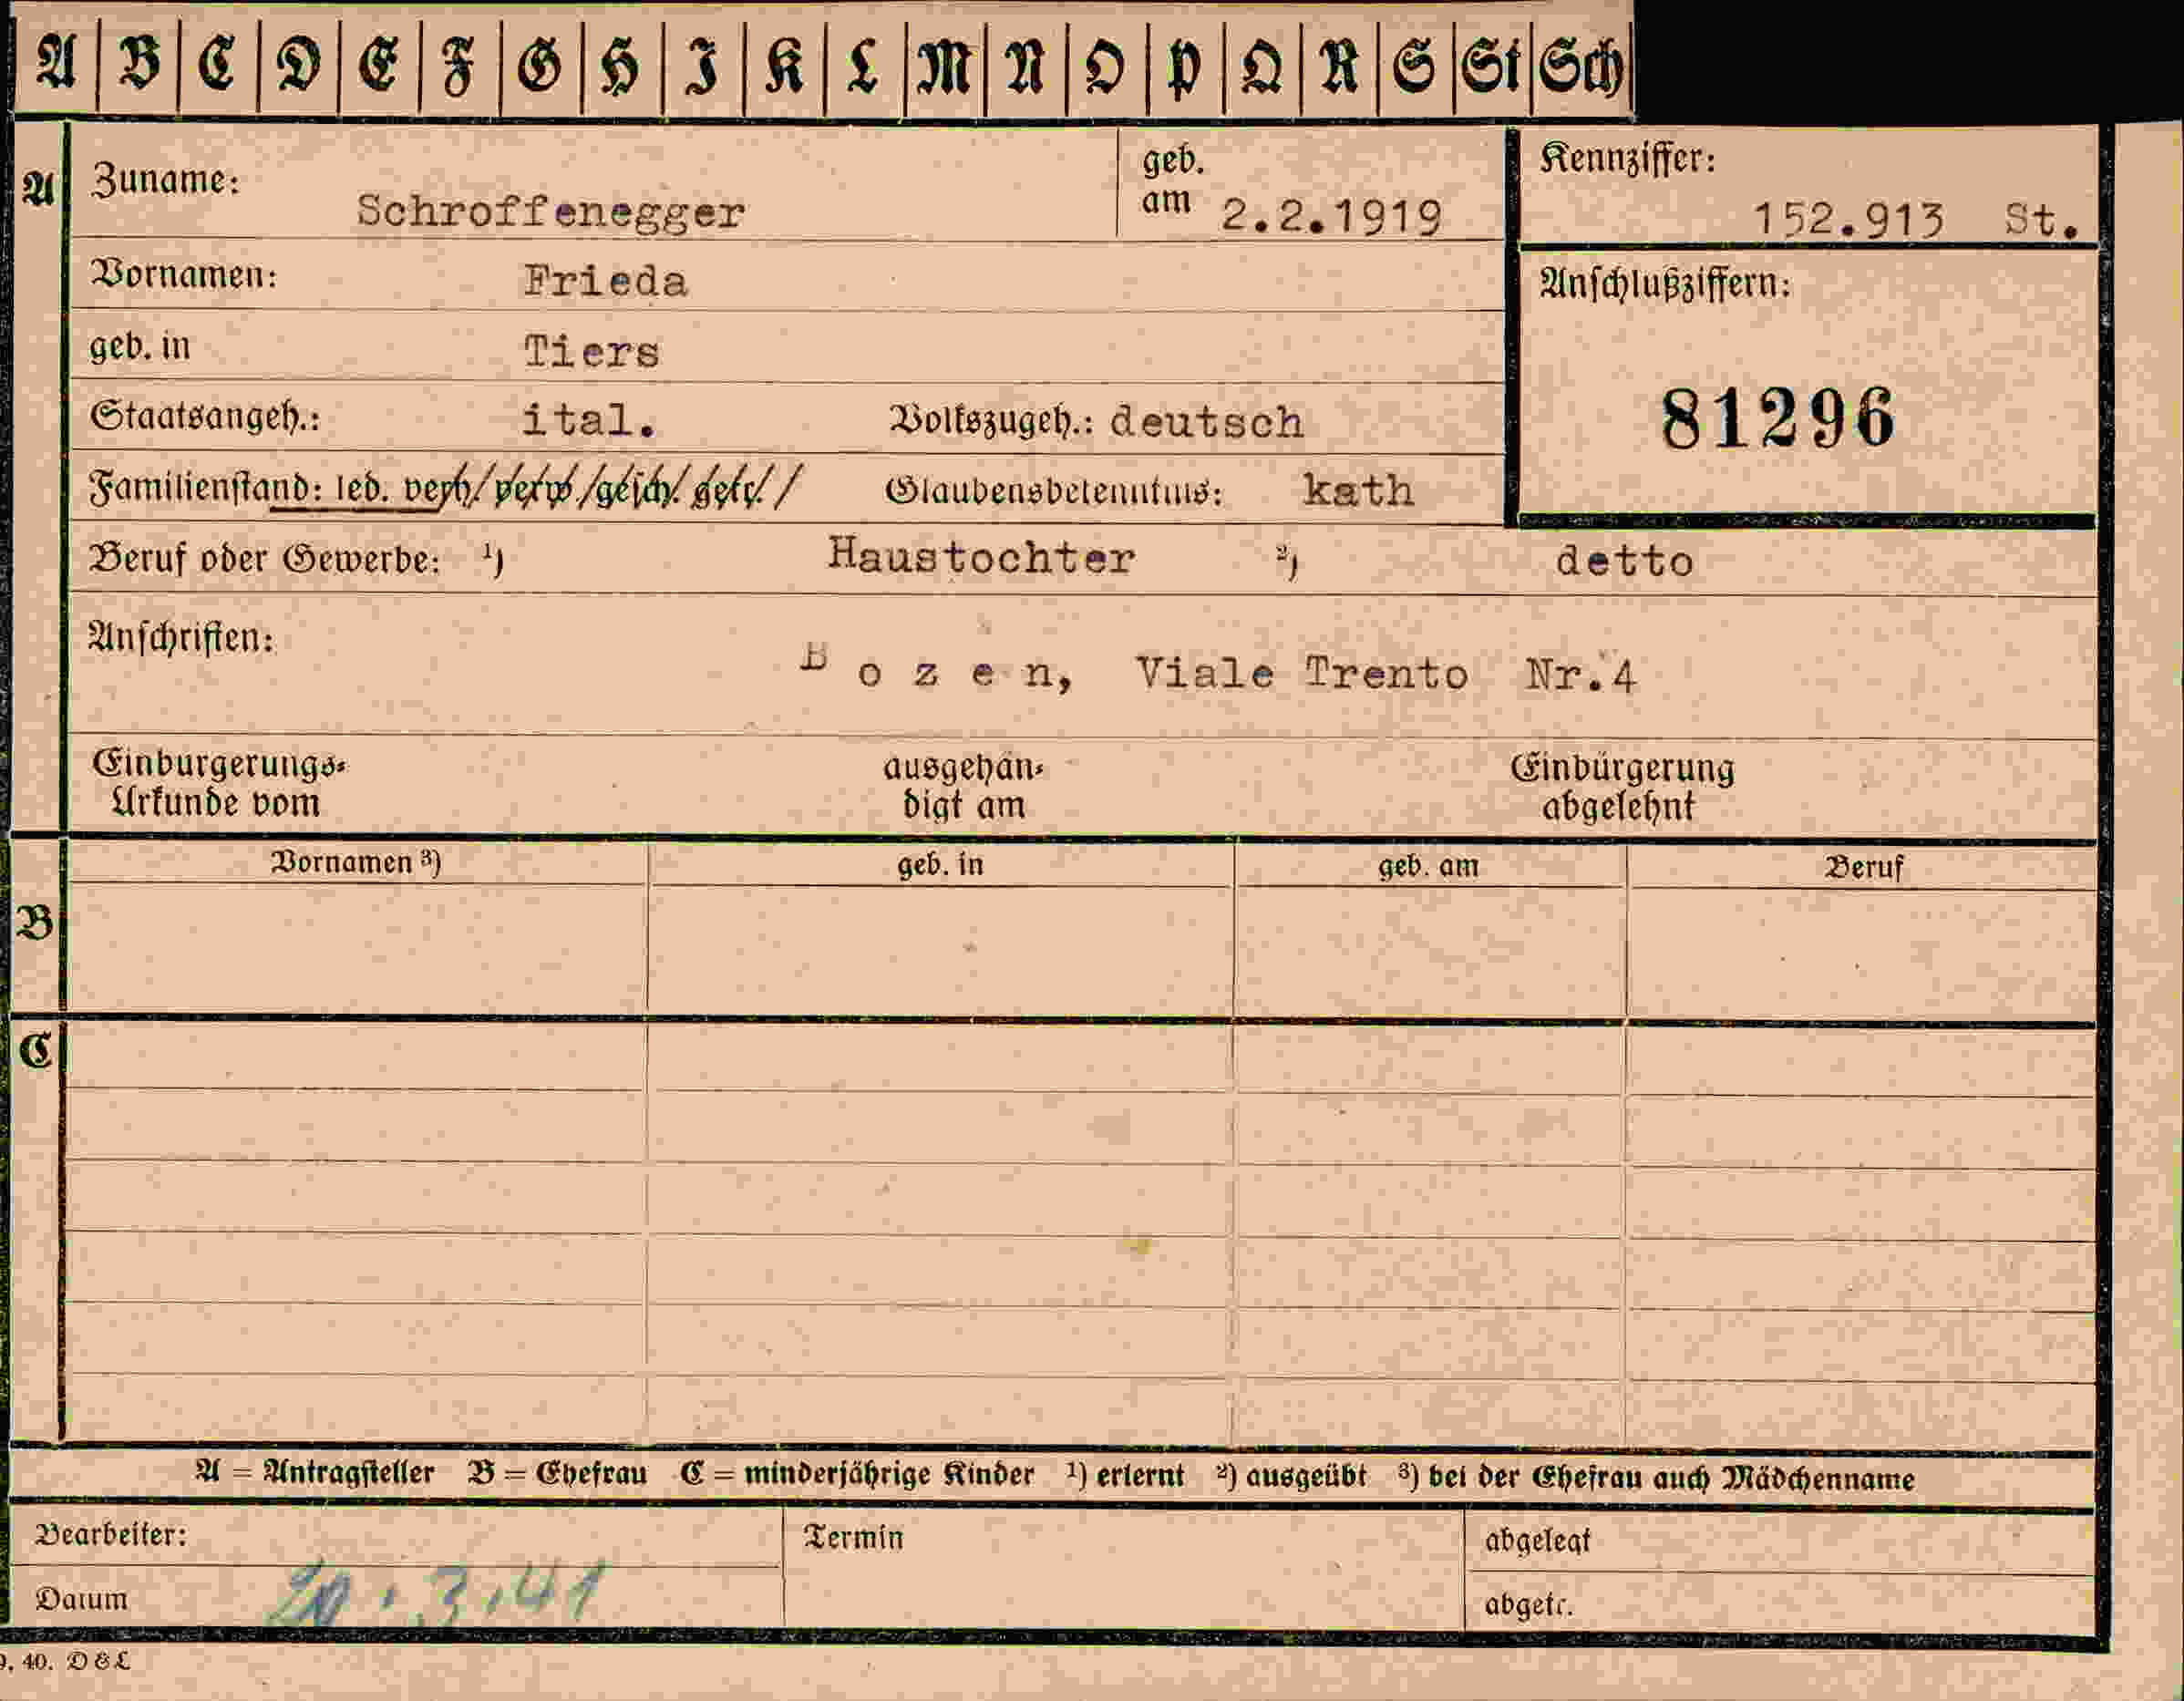 A B C D E F G H I K L M N O P Q R S St Sch
A Zuname: Schroffenegger geb. am 2.2.1919 Kennziffer: 152.913 St.
Vornamen: Frieda Anschlußziffern:
geb. in Tiers
81296
Staatsangeh.: ital. Volkszugeh.: deutsch
Familienstand: led. verh. verw. gesch. getr. Glaubensbekenntnis: kath
Beruf oder Gewerbe: ¹) Haustochter ²) detto
Anschriften: B o z e n, Viale Trento Nr.4
Einbürgerungs- ausgehän- Einbürgerung
Urkunde vom digt am abgelehnt
Vornamen ³) geb. in geb. am Beruf
B
C
A = Antragsteller B = Ehefrau C = minderjährige Kinder ¹) erlernt ²) ausgeübt ³) bei der Ehefrau auch Mädchenname
Bearbeiter: Termin abgelegt
Datum 20.3.41 abgetr.
9. 40. D & L